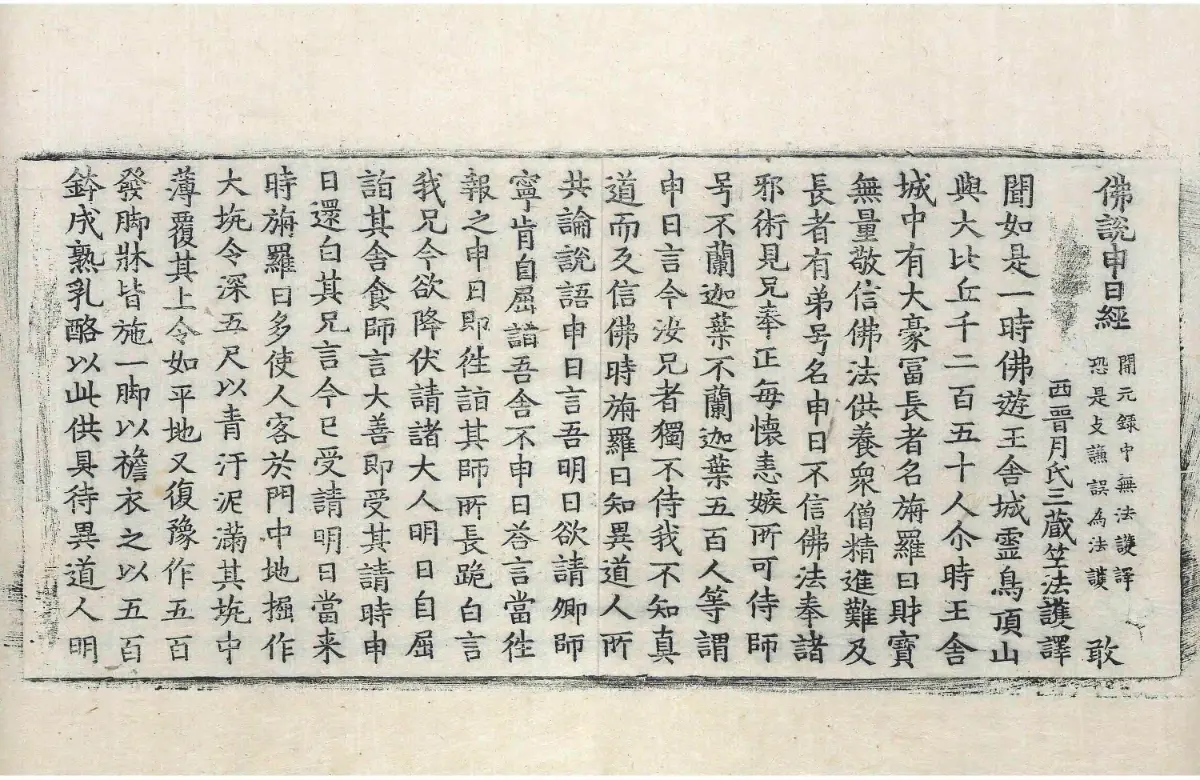 佛說申日經
開元録中無法護譯
恐是攴謙誤為法護
敢
西晉月氏三蔵竺法護譯
聞如是一時佛遊王舍城靈鳥頂山
與大比丘千二百五十人尒時王舍
城中有大豪冨長者名旃羅日財寶
無量敬信佛法供養衆僧精進難及
長者有弟号名申日不信佛法奉諸
邪術見兄奉正每懷恚嫉所可侍師
号不蘭迦葉不蘭迦葉五百人等謂
申日言今汝兄者獨不侍我不知真
道而反信佛時旃羅日知異道人所
共論說語申日言吾明日欲請卿師
寧肯自屈詣吾舍不申日荅言當徃
報之申日即徃詣其師所長跪白言
我兄今欲降伏請諸大人明日自屈
詣其舍食師言大善即受其請時申
日還白其兄言今已受請明日當来
時旃羅日多使人客於門中地掘作
大坑令深五尺以青汙泥滿其坑中
薄覆其上令如平地又復豫作五百
發脚牀皆施一脚以襜衣之以五百
鉢成熟乳酪以此供具待異道人明